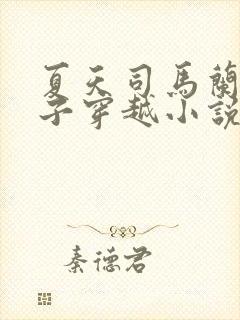 夏天司馬蘭
子穿越小説
秦德君